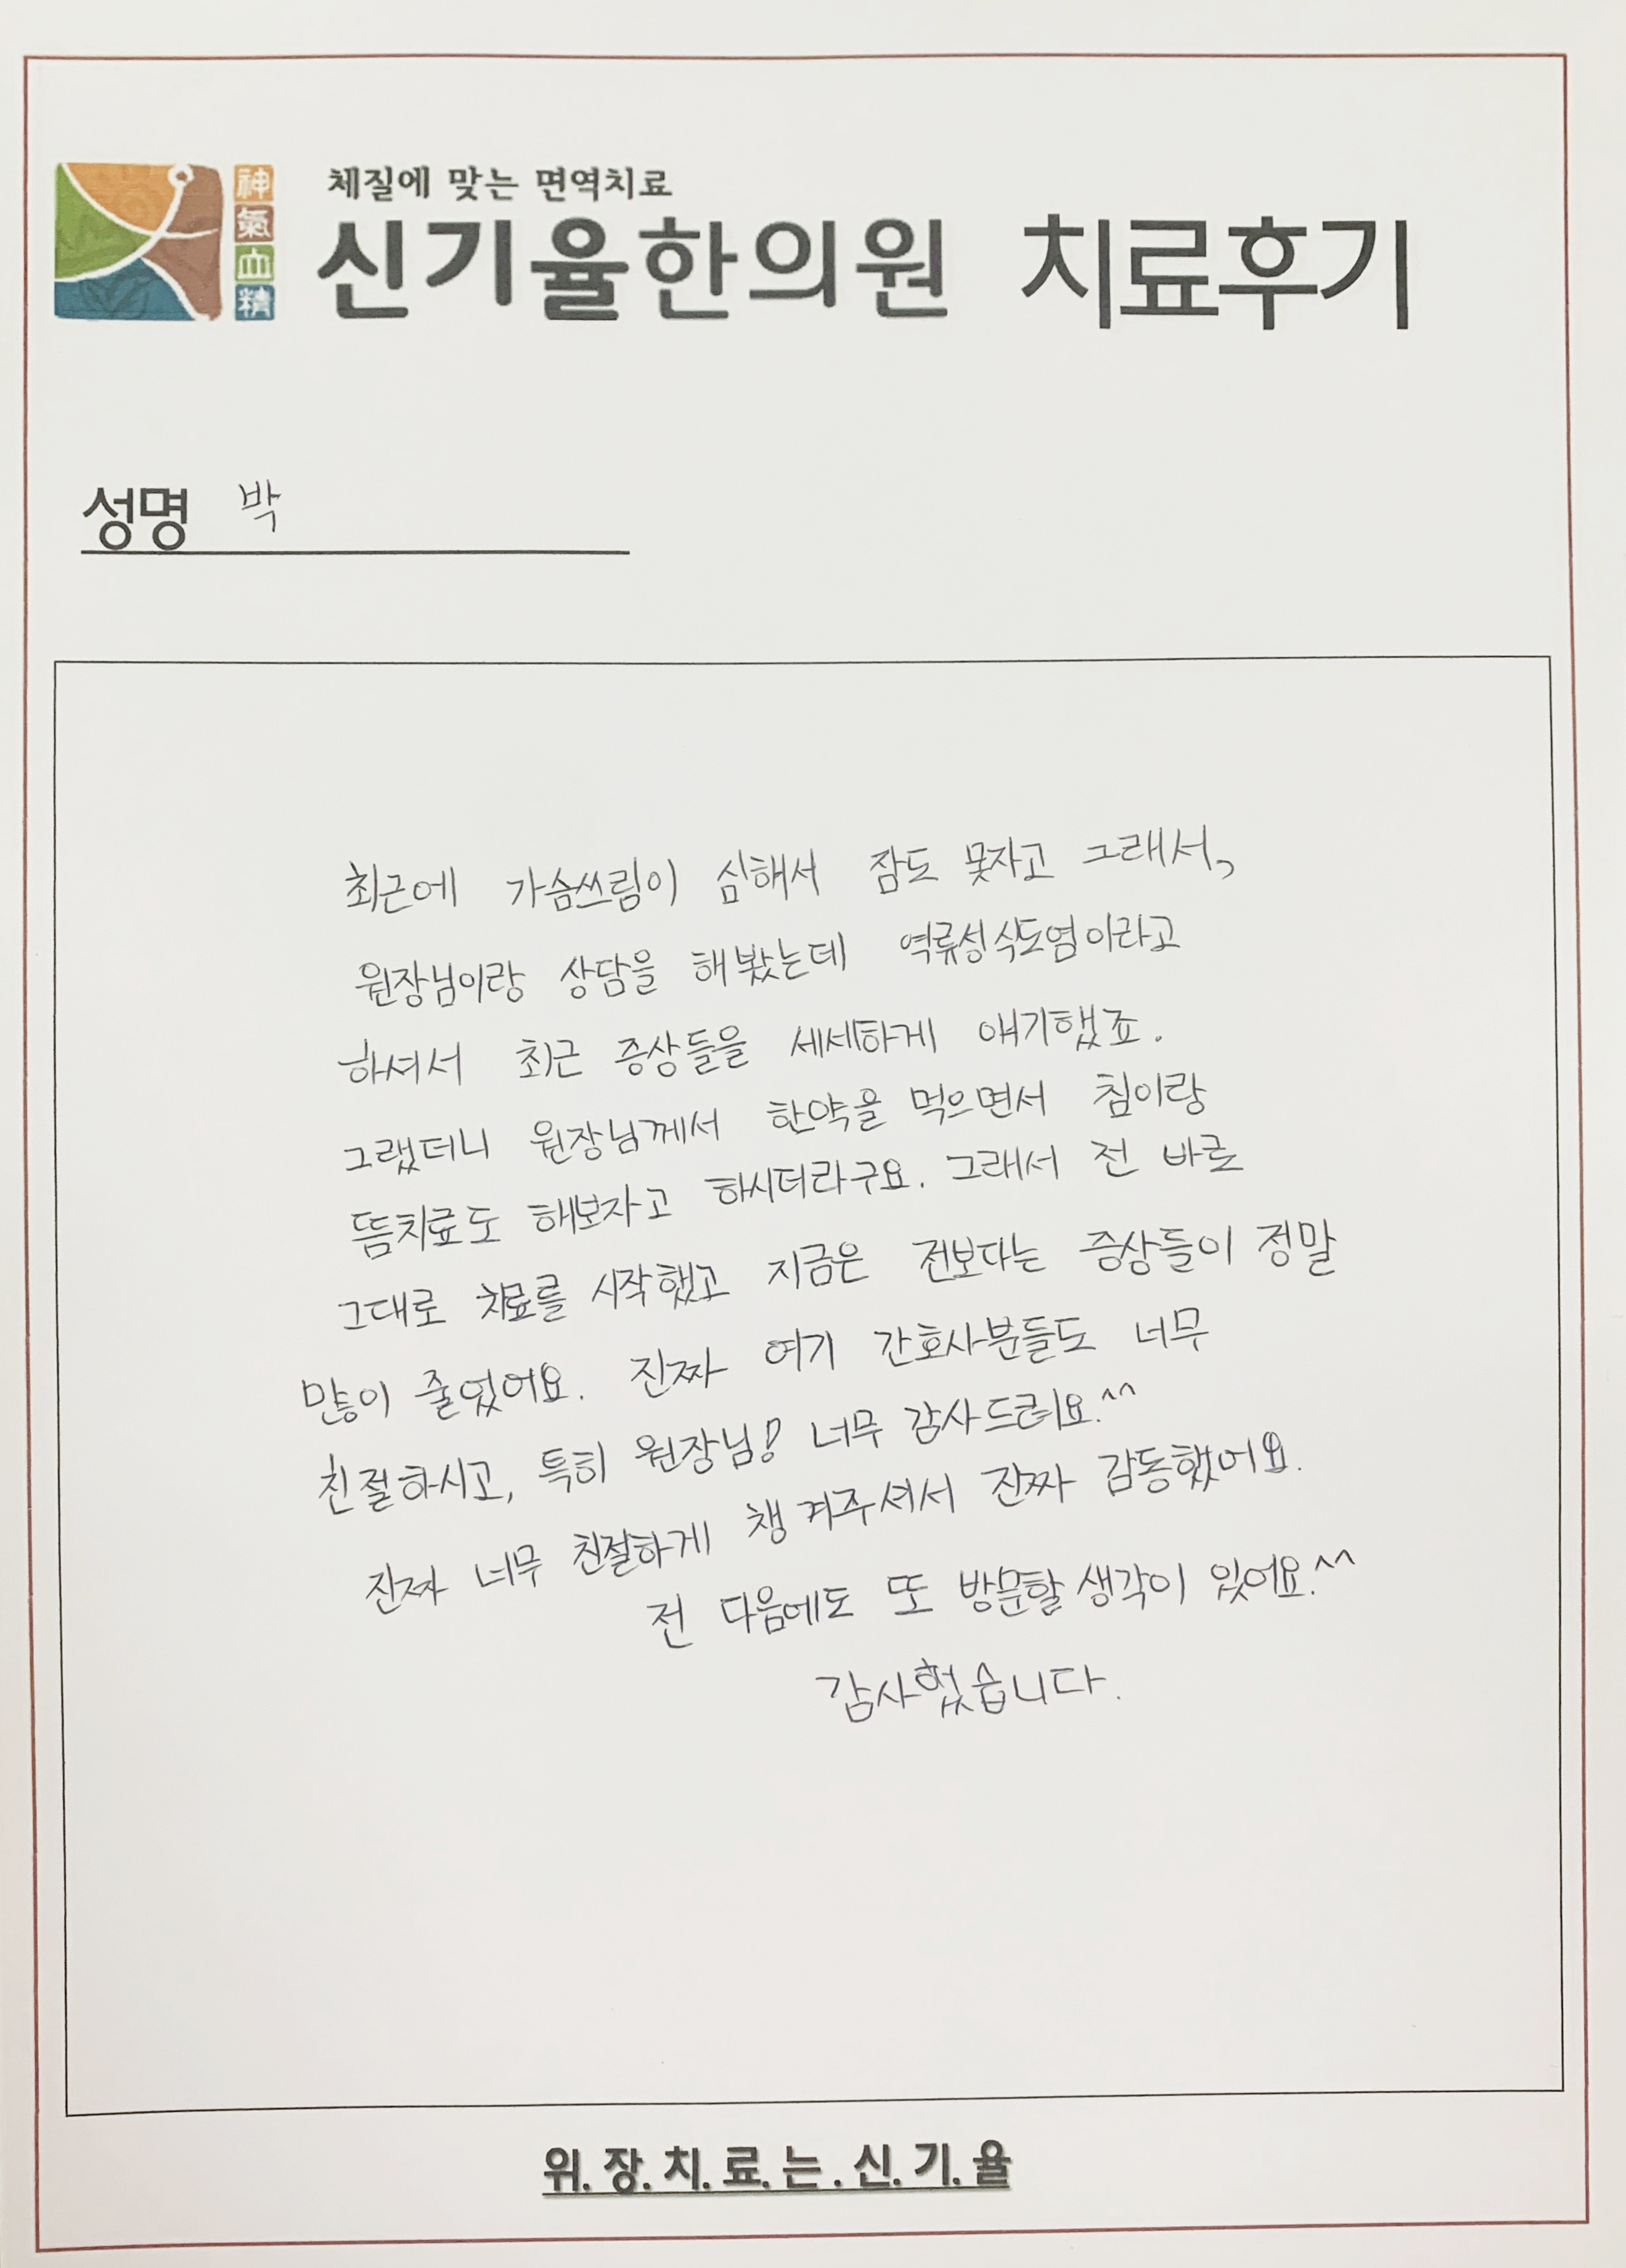 神
氣
血
精
체질에 맞는 면역치료
신기율한의원 치료후기
성명 박
최근에 가슴쓰림이 심해서 잠도 못자고 그래서,
원장님이랑 상담을 해봤는데 역류성식도염이라고
하셔서 최근 증상들을 세세하게 얘기했죠.
그랬더니 원장님께서 한약을 먹으면서 침이랑
뜸치료도 해보자고 하시더라구요. 그래서 전 바로
그대로 치료를 시작했고 지금은 전보다는 증상들이 정말
많이 줄었어요. 진짜 여기 간호사분들도 너무
친절하시고, 특히 원장님! 너무 감사드려요.^^
진짜 너무 친절하게 챙겨주셔서 진짜 감동했어요.
전 다음에도 또 방문할 생각이 있어요.^^
감사했습니다.
위.장.치.료.는.신.기.율